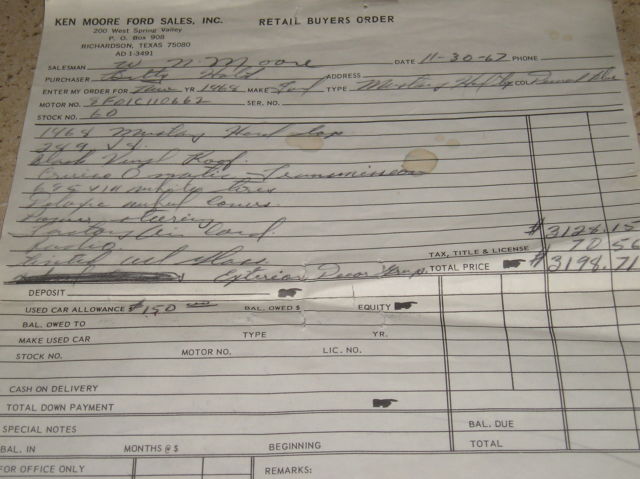 KEN MOORE FORD SALES, INC. RETAIL BUYERS ORDER
200 West Spring Valley
P. O. Box 908
RICHARDSON, TEXAS 75080
AD 1-3491
SALESMAN W N Moore DATE 11-30-67 PHONE
PURCHASER ADDRESS
ENTER MY ORDER FOR New YR 1968 MAKE Ford TYPE Mustang COL Blue
MOTOR NO. 8F01C110662 SER. NO.
STOCK NO. 60
1968 Mustang Hard top
289 V8.
Black Vinyl Roof.
Cruise O matic Transmission
tires
wheel covers.
Power steering
Factory Air Cond
Radio
$3128.15
Tinted Glass TAX, TITLE & LICENSE 70.56
Exterior Decor Group. TOTAL PRICE $3198.71
DEPOSIT
USED CAR ALLOWANCE $150 BAL. OWED $ EQUITY
BAL. OWED TO
MAKE USED CAR TYPE YR.
STOCK NO. MOTOR NO. LIC. NO.
CASH ON DELIVERY
TOTAL DOWN PAYMENT
SPECIAL NOTES BAL. DUE
BAL. IN MONTHS @ $ BEGINNING TOTAL
FOR OFFICE ONLY REMARKS: